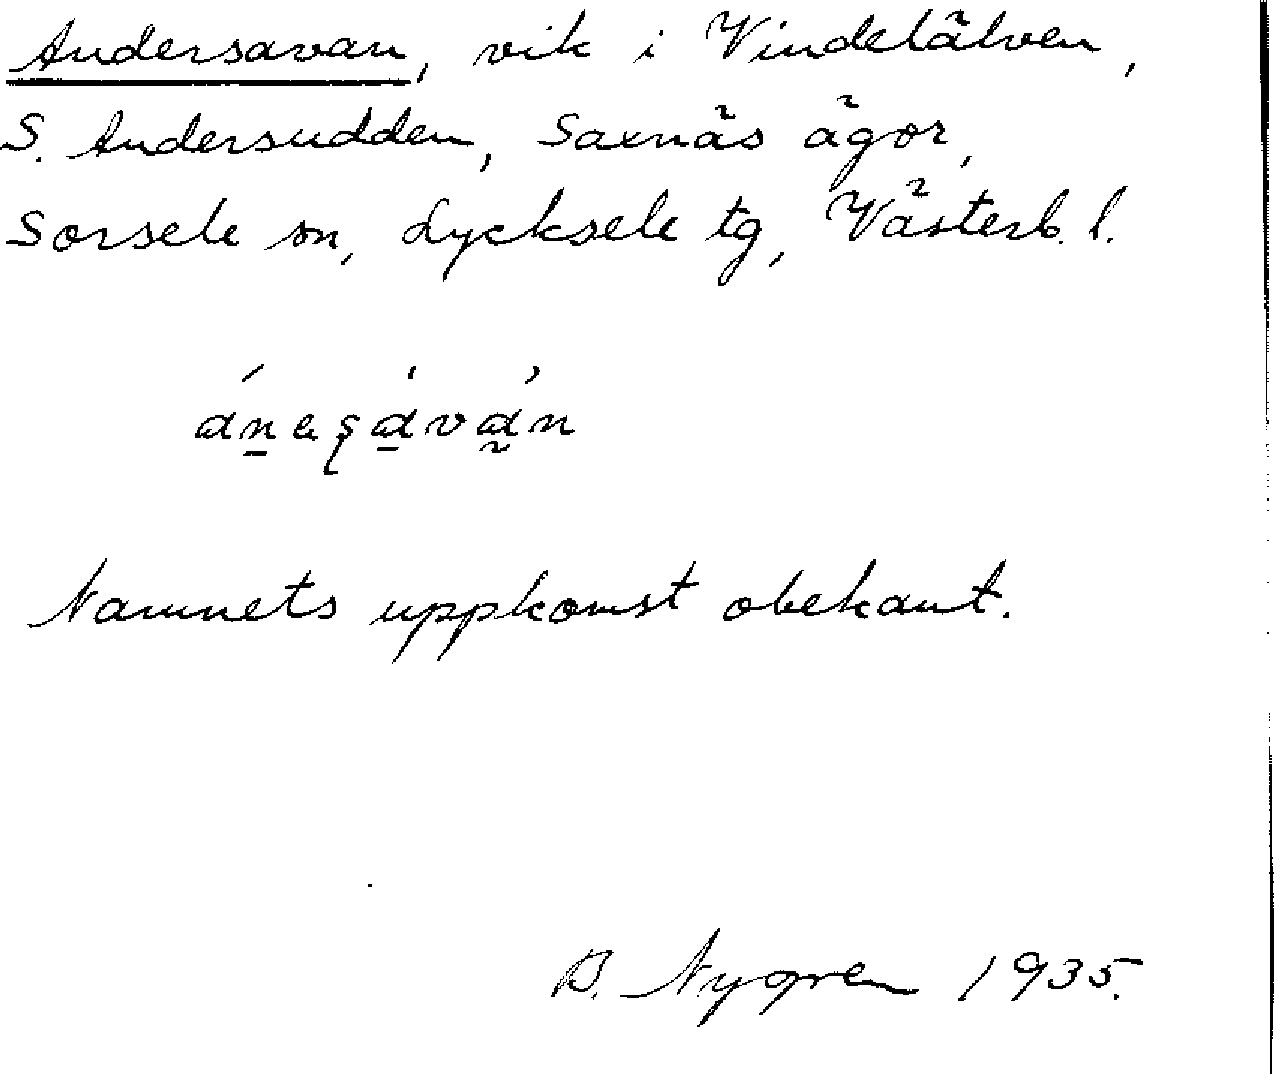 Andersavan, vik i Vindelälven,
S. Andersudden, Saxnäs ägor,
Sorsele sn, Lycksele tg, Västerb. l.
Namnets uppkomst obekant.
B. Nygren 1935.